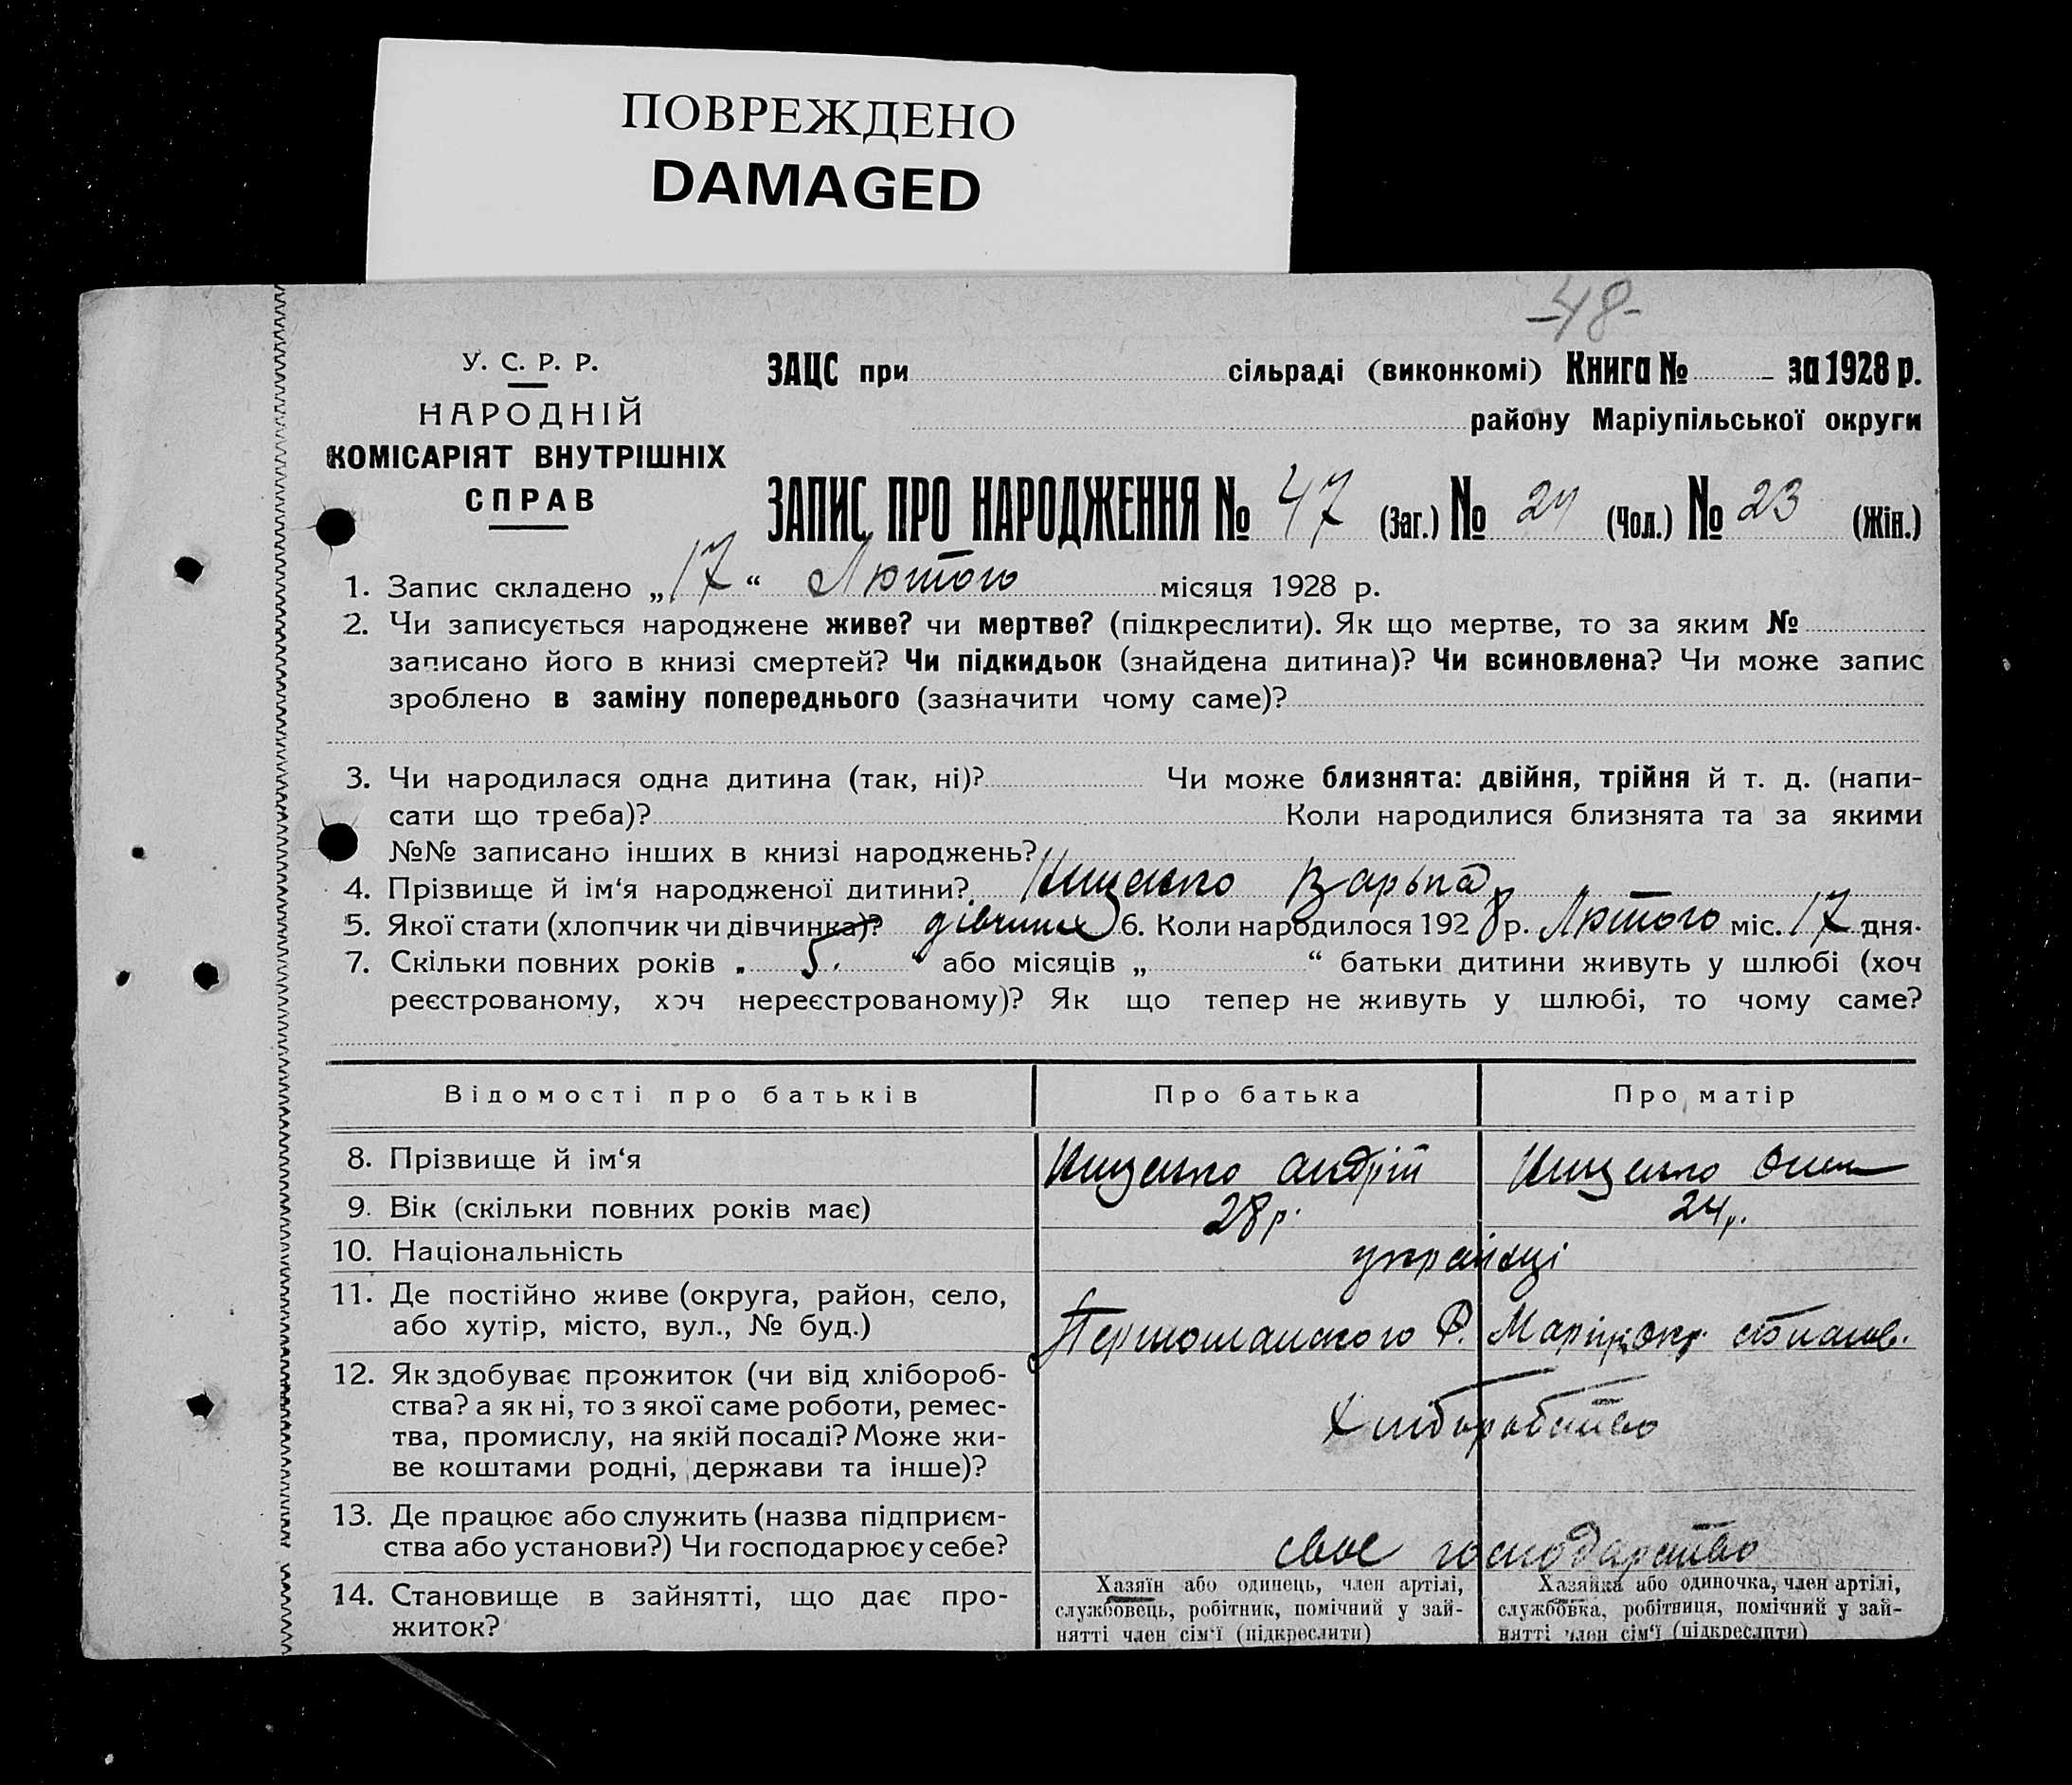 ПОВРЕЖДЕНО
DAMAGED
-48-
У. С. Р. Р.
НАРОДНІЙ
КОМІСАРІЯТ ВНУТРІШНІХ
СПРАВ
ЗАЦС при сільраді (виконкомі) Книга № за 1928 р.
району Маріупільської округи
ЗАПИС ПРО НАРОДЖЕННЯ № 47 (Заг.) № 24 (Чол.) № 23 (Жін.)
1. Запис складено „17“ Лютого місяця 1928 р.
2. Чи записується народжене живе? чи мертве? (підкреслити). Як що мертве, то за яким №
записано його в книзі смертей? Чи підкидьок (знайдена дитина)? Чи всиновлена? Чи може запис
зроблено в заміну попереднього (зазначити чому саме)?
3. Чи народилася одна дитина (так, ні)? Чи може близнята: двійня, трійня й т. д. (напи-
сати що треба)? Коли народилися близнята та за якими
№№ записано інших в книзі народжень?
4. Прізвище й ім‘я народженої дитини? Кищенко Варька
5. Якої стати (хлопчик чи дівчинка)? дівчина 6. Коли народилося 1928 р. Лютого міс. 17 дня.
7. Скільки повних років „ 5. “ або місяців „ “ батьки дитини живуть у шлюбі (хоч
реєстрованому, хоч нереєстрованому)? Як що тепер не живуть у шлюбі, то чому саме?
Відомості про батьків Про батька Про матір
8. Прізвище й ім‘я Кищенко Андрій Кищенко
9. Вік (скільки повних років має) 28 р. 24 р.
10. Національність українці
11. Де постійно живе (округа, район, село,
або хутір, місто, вул., № буд.) Першотамского Р. Маріуп. окр.
12. Як здобуває прожиток (чи від хлібороб-
ства? а як ні, то з якої саме роботи, ремес-
тва, промислу, на якій посаді? Може жи-
ве коштами родні, держави та інше)? Хліборобство
13. Де працює або служить (назва підприєм-
ства або установи?) Чи господарює у себе? своє господарство
14. Становище в зайнятті, що дає про-
житок?
Хазяїн або одинець, член артілі,
службовець, робітник, помічний у зай-
нятті член сім‘ї (підкреслити)
Хазяйка або одиночка, член артілі,
службовка, робітниця, помічний у зай-
нятті член сім‘ї (підкреслити)